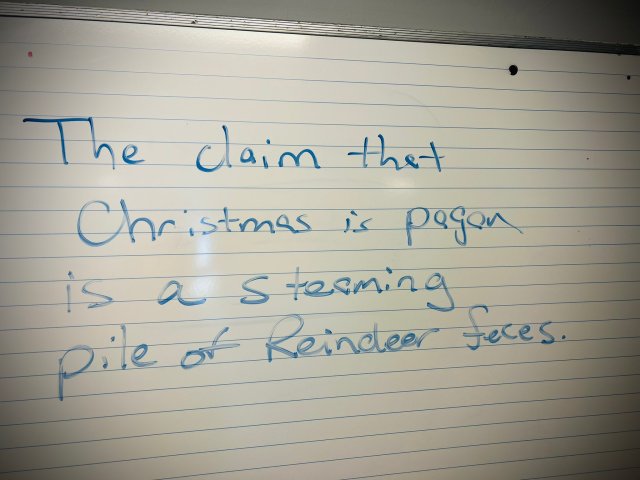 The claim that
Christmas is pagan
is a steaming
pile of Reindeer feces.